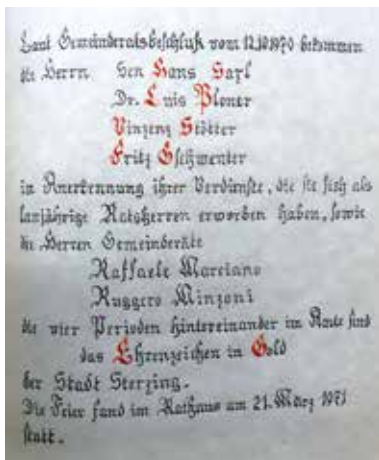 Laut Gemeinderatsbeschluß vom 12.10.1970 bekommen
die Herrn Sen Hans Saxl
Dr. Luis Ploner
Vinzenz Stötter
Fritz Gschwenter
in Anerkennung ihrer Verdienste, die sie sich als
lanjährige Ratsherren erworben haben, sowie
die Herren Gemeinderäte
Raffaele Marciano
Ruggero Minzoni
die vier Perioden hintereinander im Amte sind
das Ehrenzeichen in Gold
der Stadt Sterzing.
Die Feier fand im Rathaus am 21. März 1971
statt.